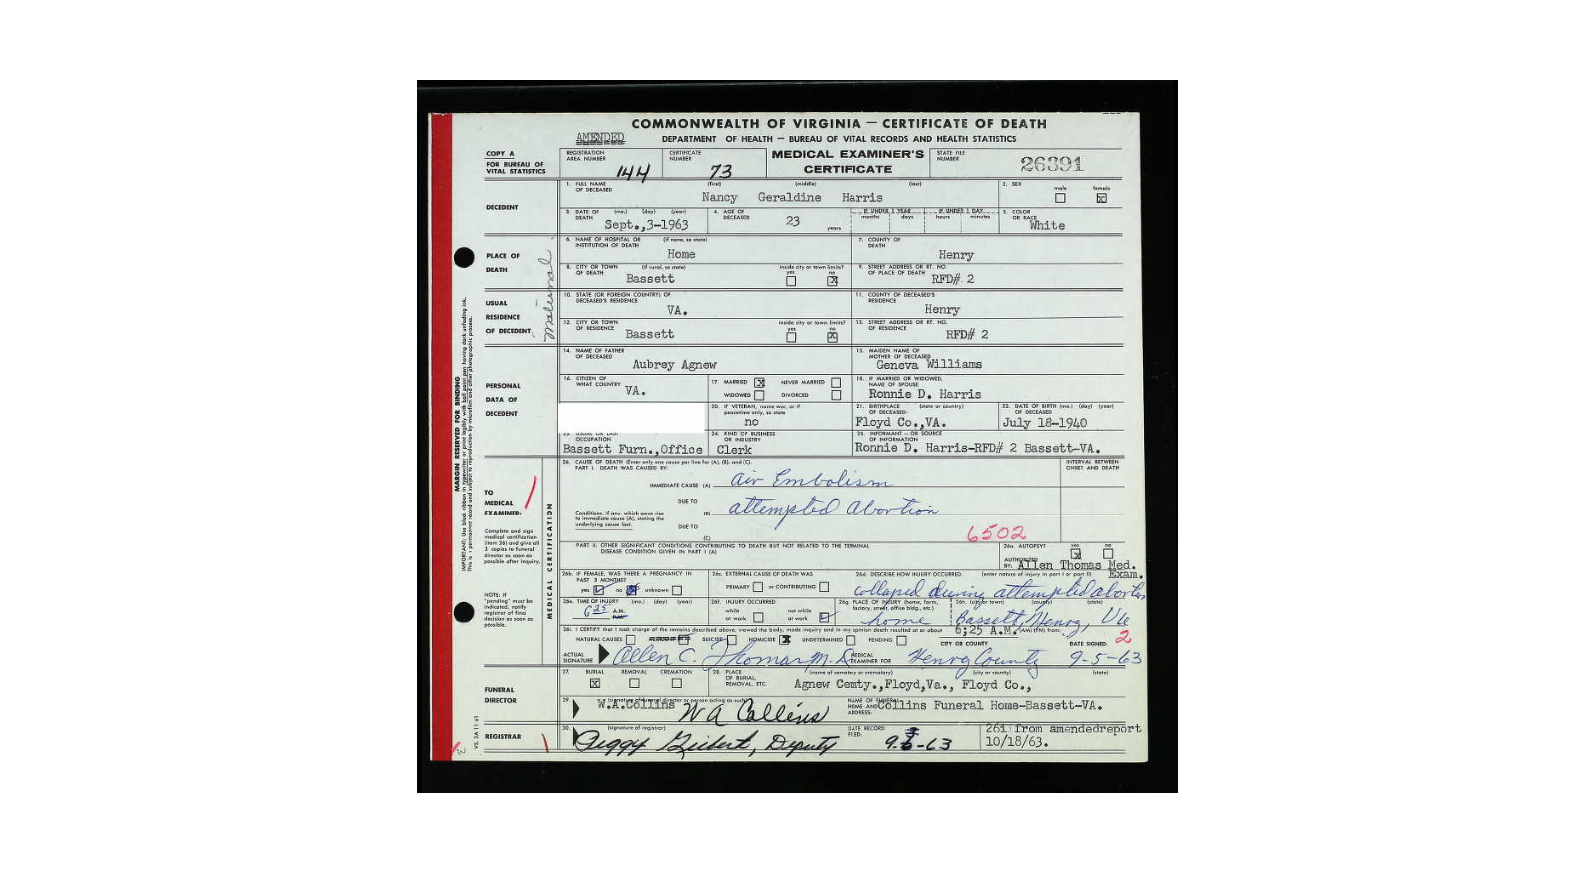 COMMONWEALTH OF VIRGINIA — CERTIFICATE OF DEATH
AMENDED
DEPARTMENT OF HEALTH — BUREAU OF VITAL RECORDS AND HEALTH STATISTICS
COPY A
FOR BUREAU OF VITAL STATISTICS
REGISTRATION AREA NUMBER 144
CERTIFICATE NUMBER 73
MEDICAL EXAMINER'S CERTIFICATE
STATE FILE NUMBER 26391
DECEDENT
1. FULL NAME OF DECEASED (first) (middle) (last)
Nancy Geraldine Harris
2. SEX male female
3. DATE OF DEATH (mo.) (day) (year)
Sept.,3-1963
4. AGE OF DECEASED 23 years
IF UNDER 1 YEAR months days
IF UNDER 1 DAY hours minutes
5. COLOR OR RACE White
PLACE OF DEATH
6. NAME OF HOSPITAL OR INSTITUTION OF DEATH (if none, so state)
Home
7. COUNTY OF DEATH Henry
8. CITY OR TOWN OF DEATH (if rural, so state)
Bassett
inside city or town limits? yes no
9. STREET ADDRESS OR RT. NO. OF PLACE OF DEATH RFD# 2
Maternal
USUAL RESIDENCE OF DECEDENT
10. STATE (OR FOREIGN COUNTRY) OF DECEASED'S RESIDENCE
VA.
11. COUNTY OF DECEASED'S RESIDENCE Henry
12. CITY OR TOWN OF RESIDENCE Bassett
inside city or town limits? yes no
13. STREET ADDRESS OR RT. NO. OF RESIDENCE RFD# 2
PERSONAL DATA OF DECEDENT
14. NAME OF FATHER OF DECEASED
Aubrey Agnew
15. MAIDEN NAME OF MOTHER OF DECEASED
Geneva Williams
16. CITIZEN OF WHAT COUNTRY VA.
17. MARRIED NEVER MARRIED
WIDOWED DIVORCED
18. IF MARRIED OR WIDOWED, NAME OF SPOUSE
Ronnie D. Harris
20. IF VETERAN, name war, or if peacetime only, so state
no
21. BIRTHPLACE OF DECEASED (state or country)
Floyd Co.,VA.
22. DATE OF BIRTH (mo.) (day) (year) OF DECEASED
July 18-1940
OCCUPATION
Bassett Furn.,Office
24. KIND OF BUSINESS OR INDUSTRY
Clerk
25. INFORMANT — OR SOURCE OF INFORMATION
Ronnie D. Harris-RFD# 2 Bassett-VA.
TO MEDICAL EXAMINER:
Complete and sign medical certification (item 26) and give all 3 copies to funeral director as soon as possible after inquiry.
NOTE: If "pending" must be indicated, notify registrar of final decision as soon as possible.
MEDICAL CERTIFICATION
26. CAUSE OF DEATH (Enter only one cause per line for (A), (B), and (C).
PART I. DEATH WAS CAUSED BY:
INTERVAL BETWEEN ONSET AND DEATH
IMMEDIATE CAUSE (A) air Embolism
DUE TO
Conditions, if any, which gave rise to immediate cause (A), stating the underlying cause last.
(B) attempted Abortion
DUE TO
(C)
6502
PART II. OTHER SIGNIFICANT CONDITIONS CONTRIBUTING TO DEATH BUT NOT RELATED TO THE TERMINAL DISEASE CONDITION GIVEN IN PART I (A)
26a. AUTOPSY? yes no
AUTHORIZED BY: Allen Thomas Med. Exam.
26b. IF FEMALE, WAS THERE A PREGNANCY IN PAST 3 MONTHS?
yes no unknown
26c. EXTERNAL CAUSE OF DEATH WAS
PRIMARY or CONTRIBUTING
26d. DESCRIBE HOW INJURY OCCURRED. (enter nature of injury in part I or part II)
collapsed during attempted abortion
26e. TIME OF INJURY (mo.) (day) (year)
6 25 A.M.
26f. INJURY OCCURRED
while at work not while at work
26g. PLACE OF INJURY (home, farm, factory, street, office bldg., etc.)
home
26h. (city or town) (county) (state)
Bassett, Henry, Va
26i. I CERTIFY that I took charge of the remains described above, viewed the body, made inquiry and in my opinion death resulted at or about 6;25 A.M. (AM) (PM) from:
NATURAL CAUSES SUICIDE HOMICIDE UNDETERMINED PENDING
CITY OR COUNTY
DATE SIGNED:
2
ACTUAL SIGNATURE Allen C. Thomas M.D. MEDICAL EXAMINER FOR Henry County 9-5-63
FUNERAL DIRECTOR
27. BURIAL REMOVAL CREMATION
28. PLACE OF BURIAL, REMOVAL, ETC. (name of cemetery or crematory) (city or county) (state)
Agnew Cemty.,Floyd,Va., Floyd Co.,
29. (signature of funeral director or person acting as such)
W.A.Collins W A Collins
NAME OF FUNERAL HOME AND ADDRESS: Collins Funeral Home-Bassett-VA.
REGISTRAR
30. (signature of registrar)
Peggy Gilbert, Deputy
DATE RECORD FILED:
26i from amendedreport
10/18/63.
MARGIN RESERVED FOR BINDING
VS. 2A